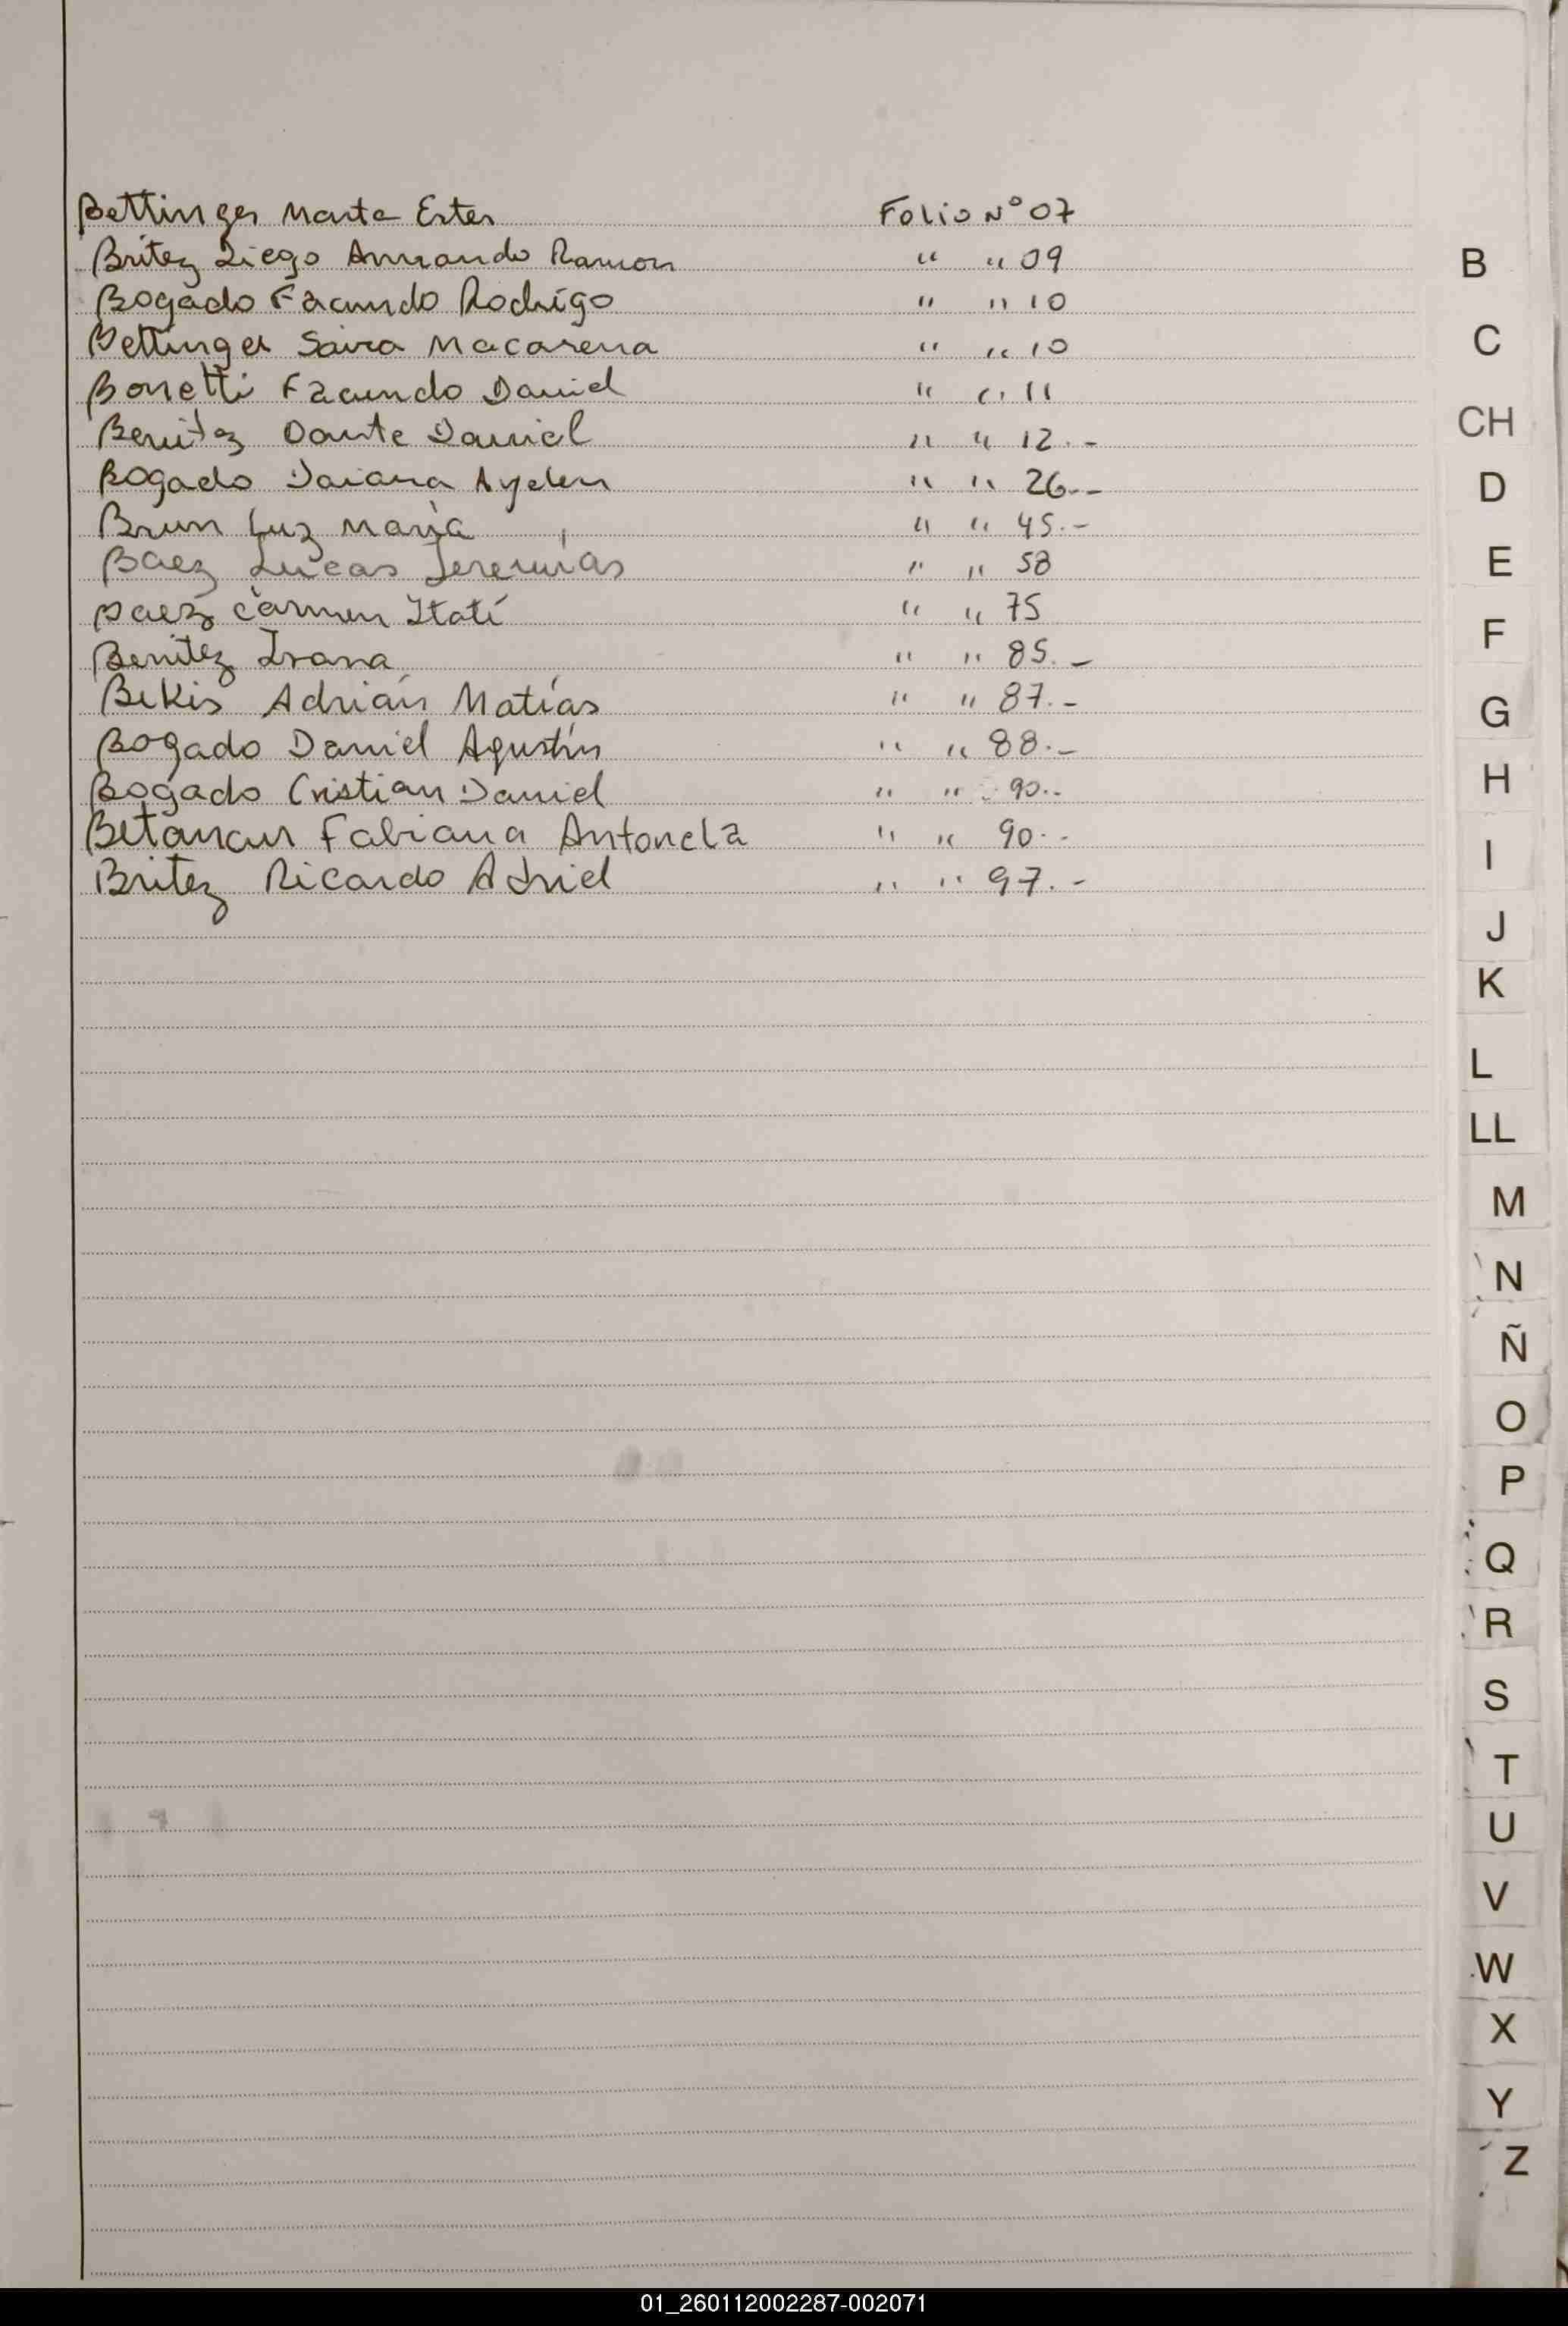 Bettinger Marta Ester Folio N° 07
Britez Diego Armando Ramon " " 09
Bogado Facundo Rodrigo " " 10
Bettinger Saira Macarena " " 10
Bonetti Facundo Daniel " " 11
Benitez Dante Daniel " " 12.-
Bogado Daiana Ayelen " " 26.-
Brun Luz María " " 45.-
Baez Lucas Jeremías " " 58
Baez Carmen Itatí " " 75
Benitez Ivana " " 85.-
Bekis Adrián Matías " " 87.-
Bogado Daniel Agustín " " 88.-
Bogado Cristian Daniel " " 90.-
Betancur Fabiana Antonela " " 90.-
Britez Ricardo Adriel " " 97.-
B
C
CH
D
E
F
G
H
I
J
K
L
LL
M
N
Ñ
O
P
Q
R
S
T
U
V
W
X
Y
Z
01_260112002287-002071